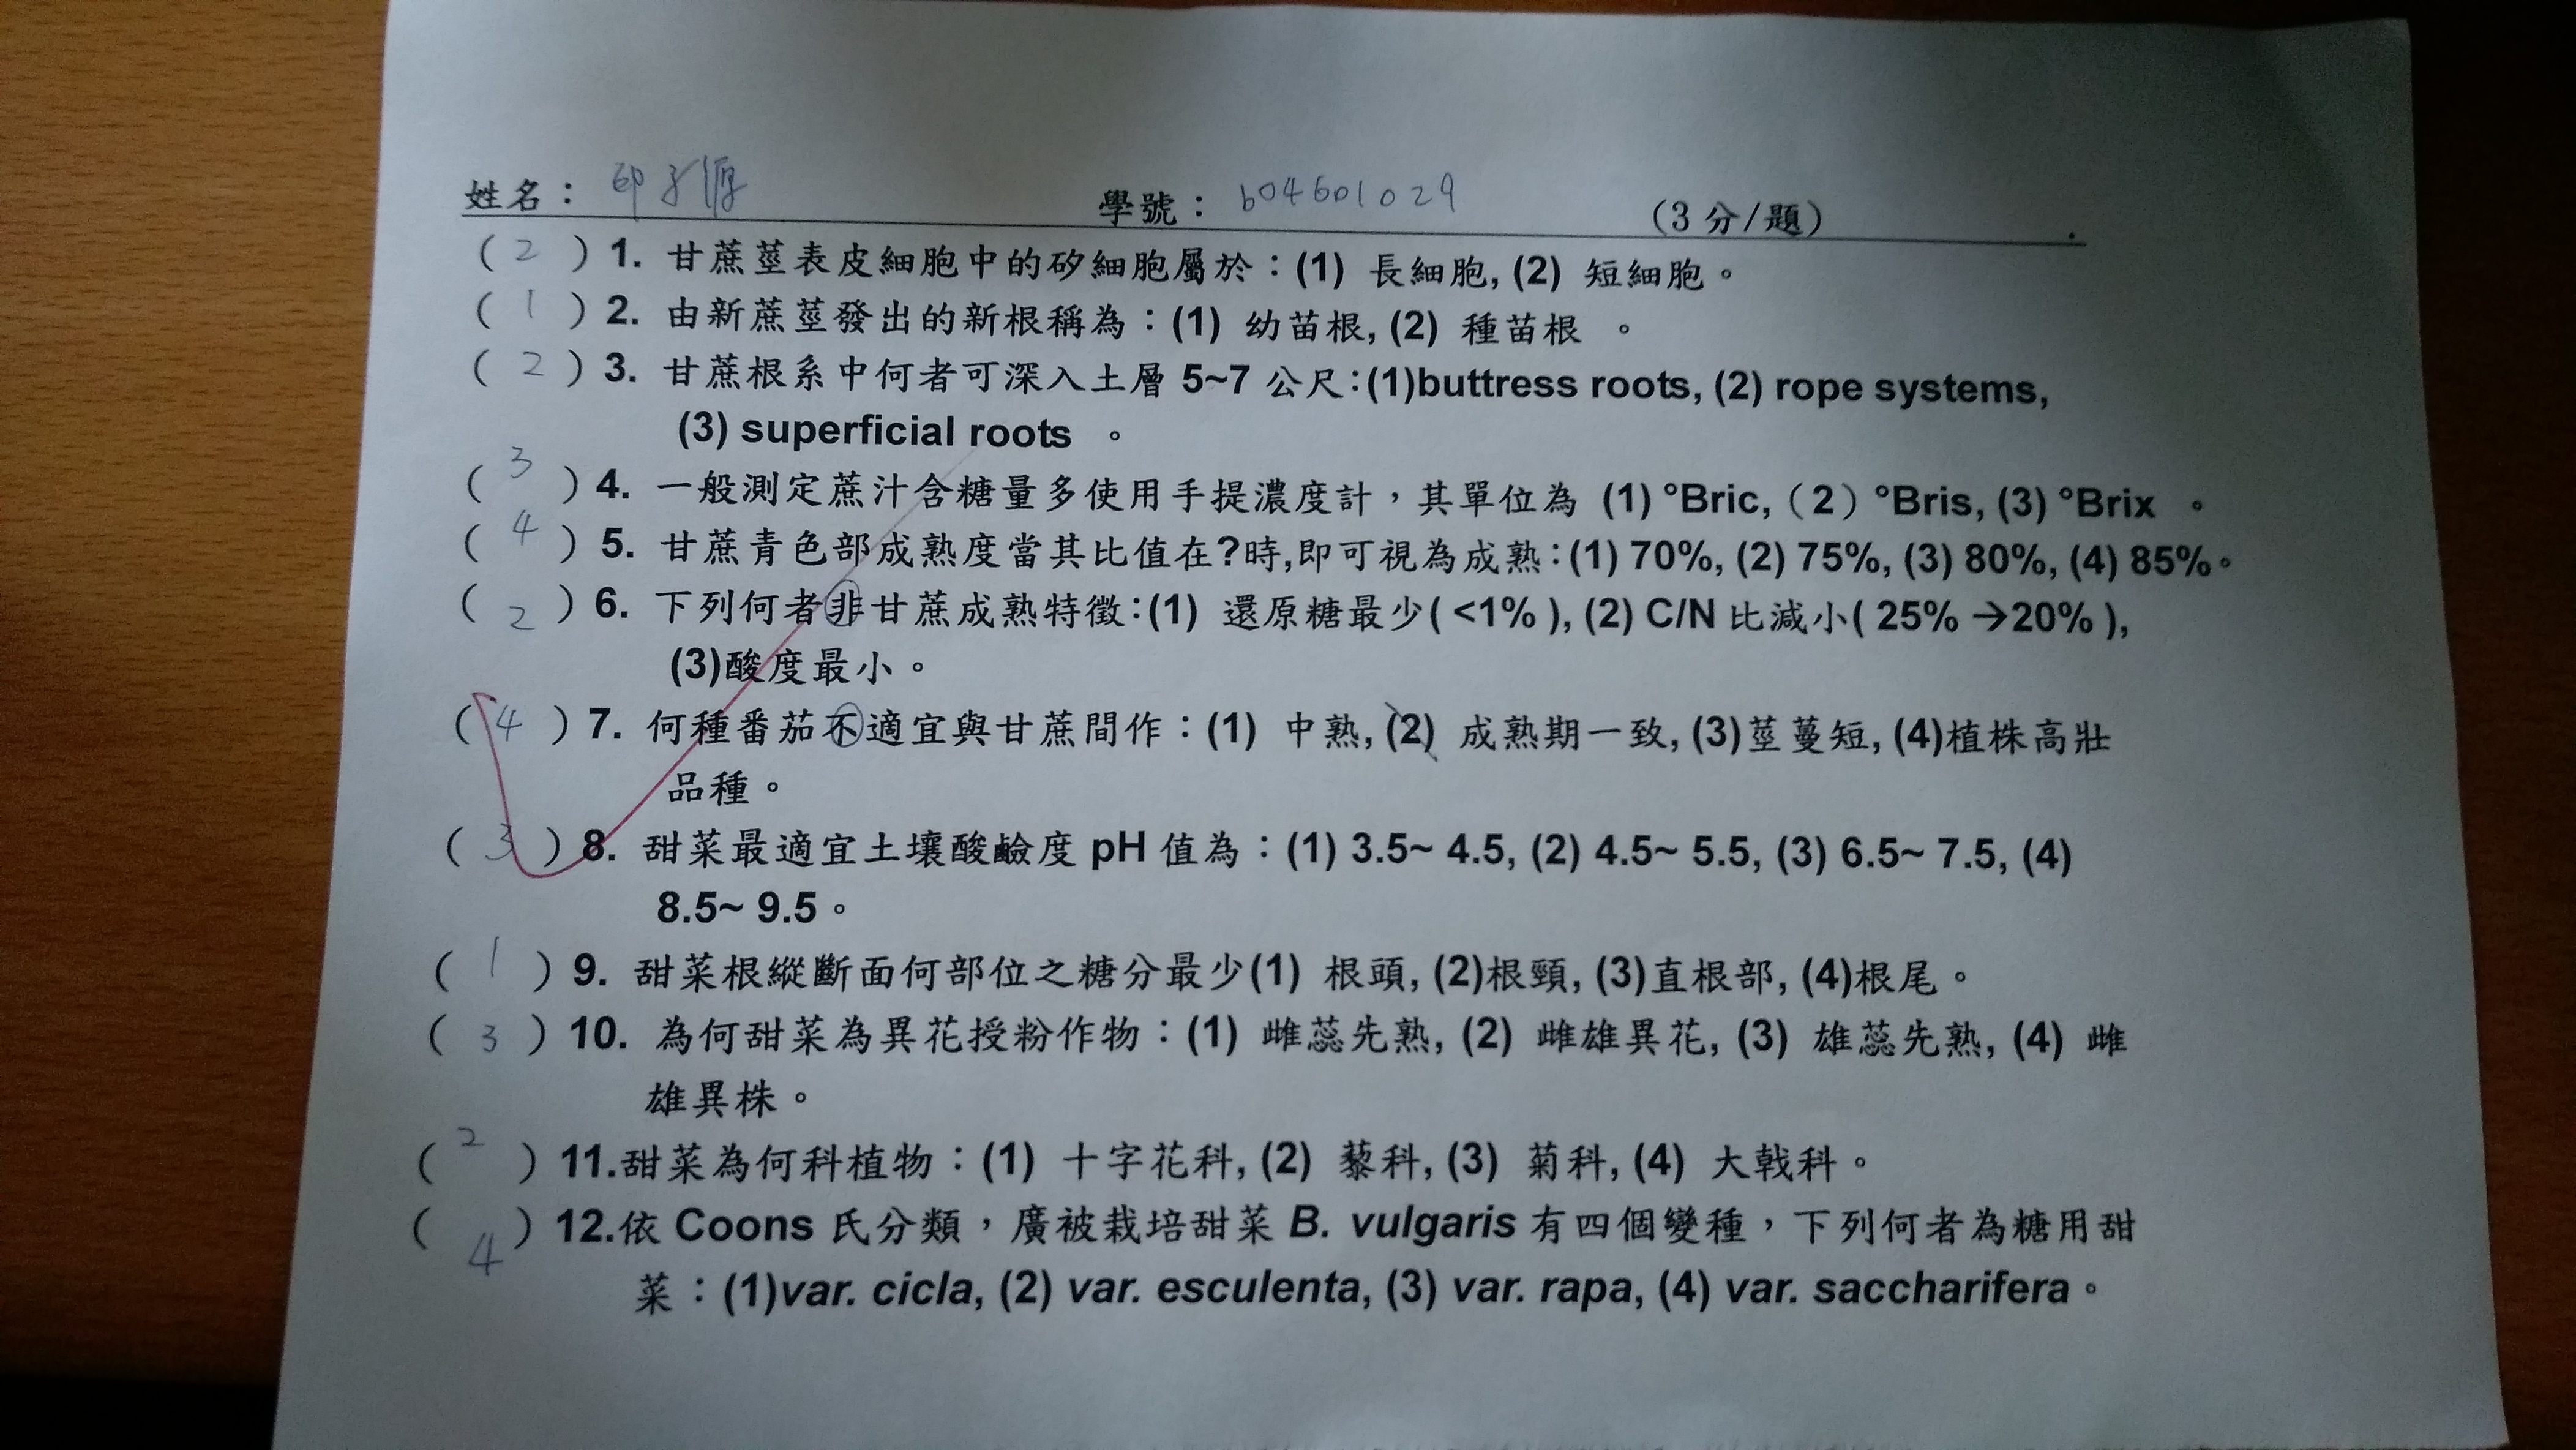 姓名： 印子源 學號： b04601029 (3 分/題) .
( 2 ) 1. 甘蔗莖表皮細胞中的矽細胞屬於：(1) 長細胞, (2) 短細胞。
( 1 ) 2. 由新蔗莖發出的新根稱為：(1) 幼苗根, (2) 種苗根 。
( 2 ) 3. 甘蔗根系中何者可深入土層 5~7 公尺：(1)buttress roots, (2) rope systems,
(3) superficial roots 。
( 3 ) 4. 一般測定蔗汁含糖量多使用手提濃度計，其單位為 (1) °Bric,（2）°Bris, (3) °Brix 。
( 4 ) 5. 甘蔗青色部成熟度當其比值在?時,即可視為成熟：(1) 70%, (2) 75%, (3) 80%, (4) 85%。
( 2 ) 6. 下列何者非甘蔗成熟特徵：(1) 還原糖最少( <1% ), (2) C/N 比減小( 25% →20% ),
(3)酸度最小。
( 4 ) 7. 何種番茄不適宜與甘蔗間作：(1) 中熟, (2) 成熟期一致, (3)莖蔓短, (4)植株高壯
品種。
( 3 ) 8. 甜菜最適宜土壤酸鹼度 pH 值為：(1) 3.5~ 4.5, (2) 4.5~ 5.5, (3) 6.5~ 7.5, (4)
8.5~ 9.5。
( 1 ) 9. 甜菜根縱斷面何部位之糖分最少(1) 根頭, (2)根頸, (3)直根部, (4)根尾。
( 3 ) 10. 為何甜菜為異花授粉作物：(1) 雌蕊先熟, (2) 雌雄異花, (3) 雄蕊先熟, (4) 雌
雄異株。
( 2 ) 11.甜菜為何科植物：(1) 十字花科, (2) 藜科, (3) 菊科, (4) 大戟科。
( 4 ) 12.依 Coons 氏分類，廣被栽培甜菜 B. vulgaris 有四個變種，下列何者為糖用甜
菜：(1)var. cicla, (2) var. esculenta, (3) var. rapa, (4) var. saccharifera。